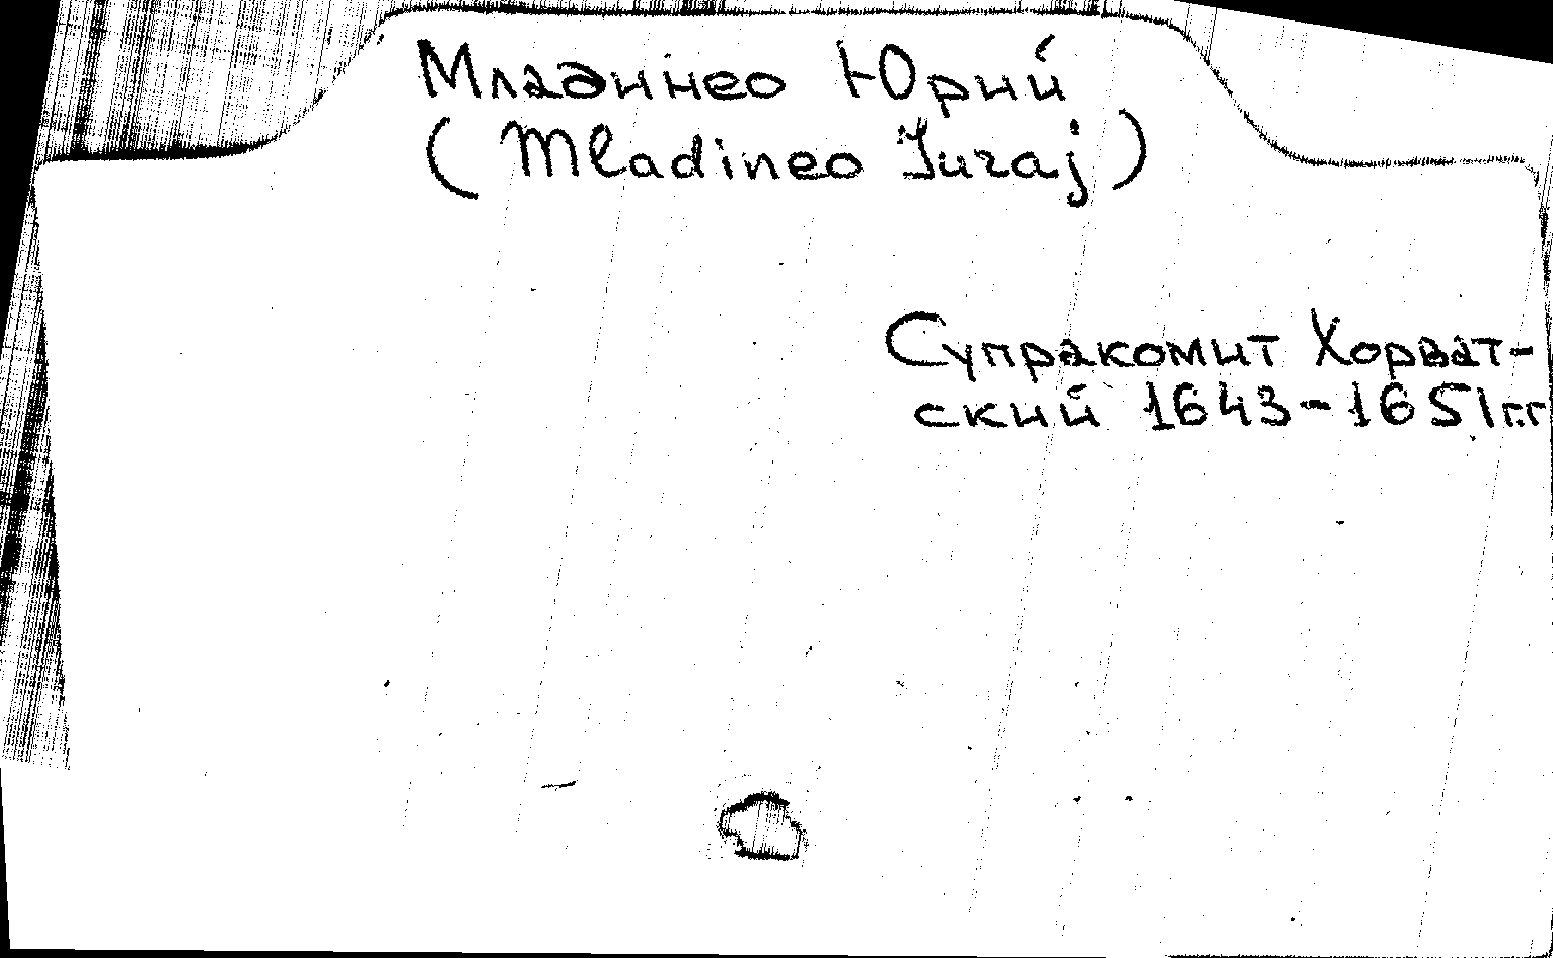 Младинео Юрий
(Mladineo Juraj)
Супракомит Хорват-
ский 1643-1651г.г